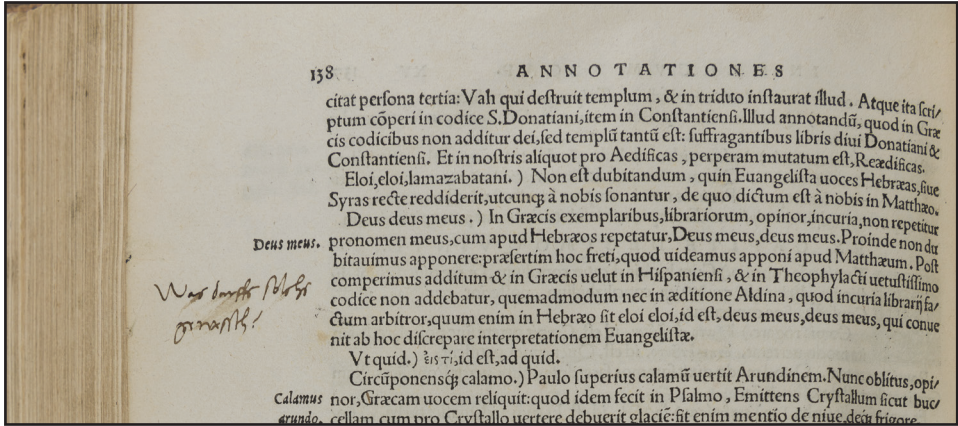 138 ANNOTATIONES
citat persona tertia: Vah qui destruit templum, & in triduo instaurat illud. Atque ita scri/
ptum cõperi in codice S. Donatiani, item in Constantiensi. Illud annotandũ, quod in Græ
cis codicibus non additur dei, sed templũ tantũ est: suffragantibus libris diui Donatiani &
Constantiensi. Et in nostris aliquot pro Aedificas, perperam mutatum est, Reædificas.
Eloi, eloi, lamazabatani.) Non est dubitandum, quin Euangelista uoces Hebræas, siue
Syras recte reddiderit, utcunqꝫ à nobis sonantur, de quo dictum est à nobis in Matthæo.
Deus deus meus.) In Græcis exemplaribus, librariorum, opinor, incuria, non repetitur
Deus meus. pronomen meus, cum apud Hebræos repetatur, Deus meus, deus meus. Proinde non du
bitauimus apponere: præsertim hoc freti, quod uideamus apponi apud Matthæum. Post
comperimus additum & in Græcis uelut in Hispaniensi, & in Theophylacti uetustissimo
Was
codice non addebatur, quemadmodum nec in æditione Aldina, quod incuria librarij fa/
ctum arbitror, quum enim in Hebræo sit eloi eloi, id est, deus meus, deus meus, qui conue
nit ab hoc discrepare interpretationem Euangelistæ.
Vt quid.) εἰς τί, id est, ad quid.
Circũponensqꝫ calamo.) Paulo superius calamũ uertit Arundinem. Nunc oblitus, opi/
Calamus nor, Græcam uocem reliquit: quod idem fecit in Psalmo, Emittens Crystallum sicut buc/
arundo. cellam cum pro Crystallo uertere debuerit glaciẽ: fit enim mentio de niue, deqꝫ frigore.